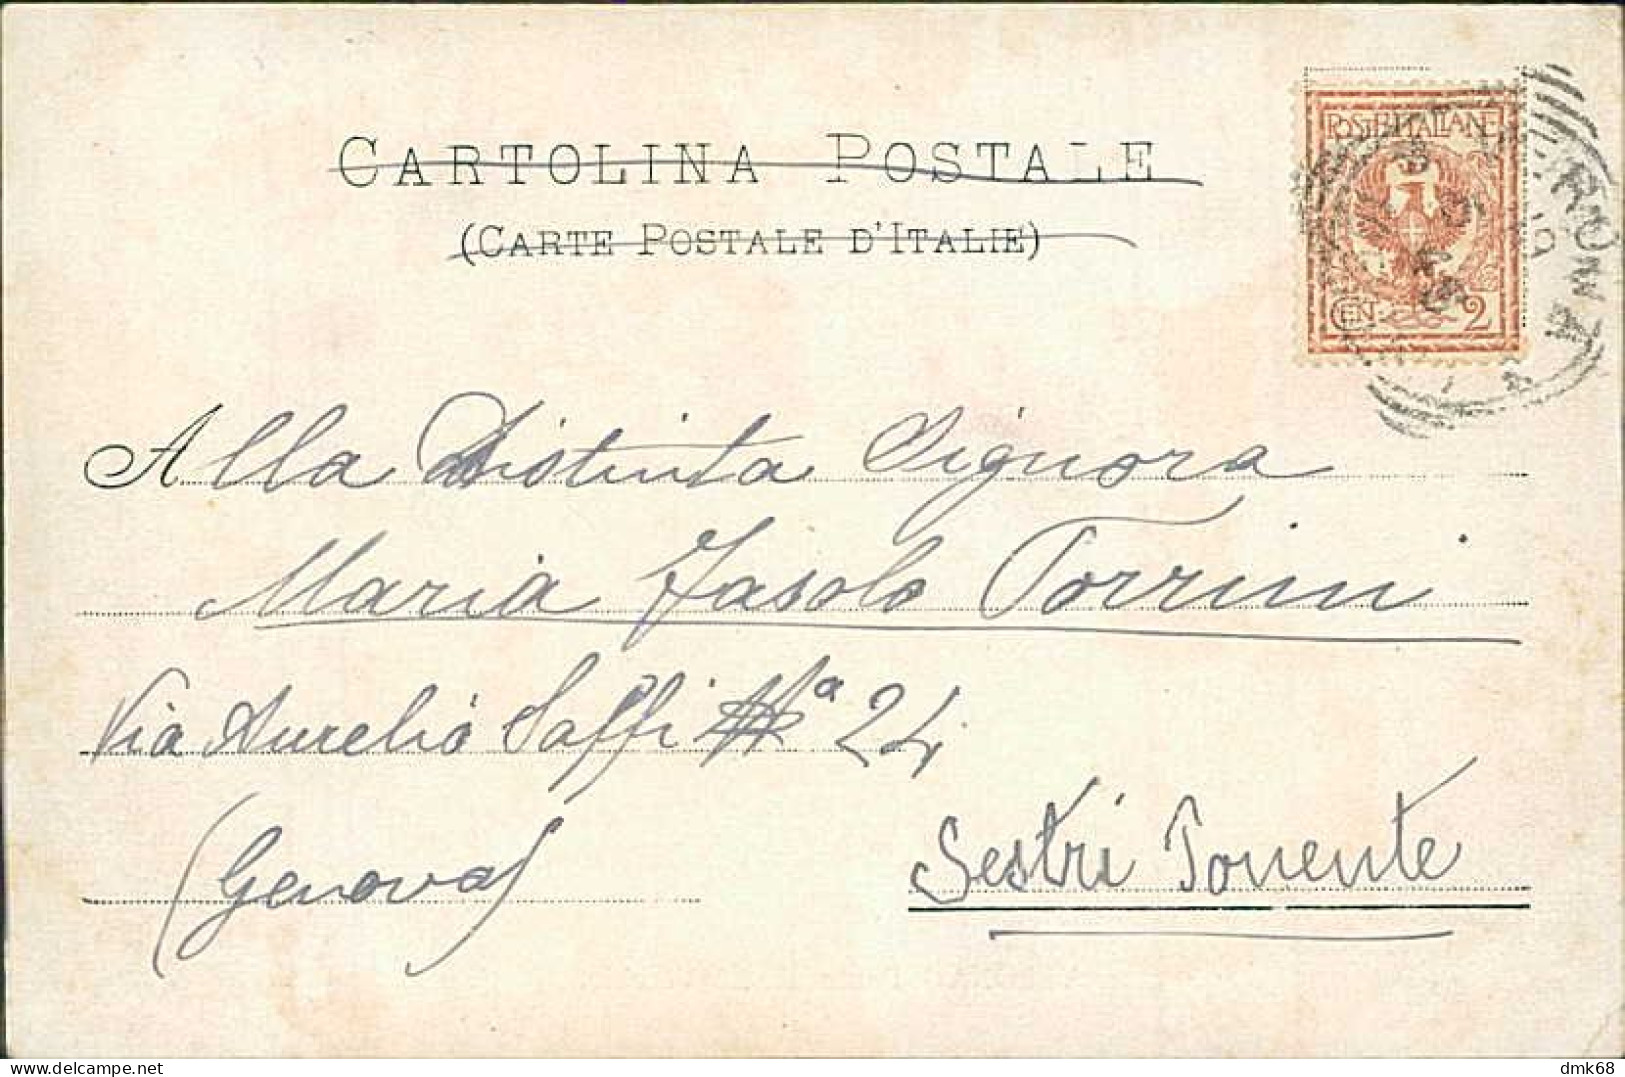 CARTOLINA POSTALE
(CARTE POSTALE D'ITALIE)
POSTE ITALIANE
CEN. 2
Alla Distinta Signora
Maria Fasolo Torrini
Via Aurelio Saffi Nº 24
(Genova)
Sestri Ponente
dmk68